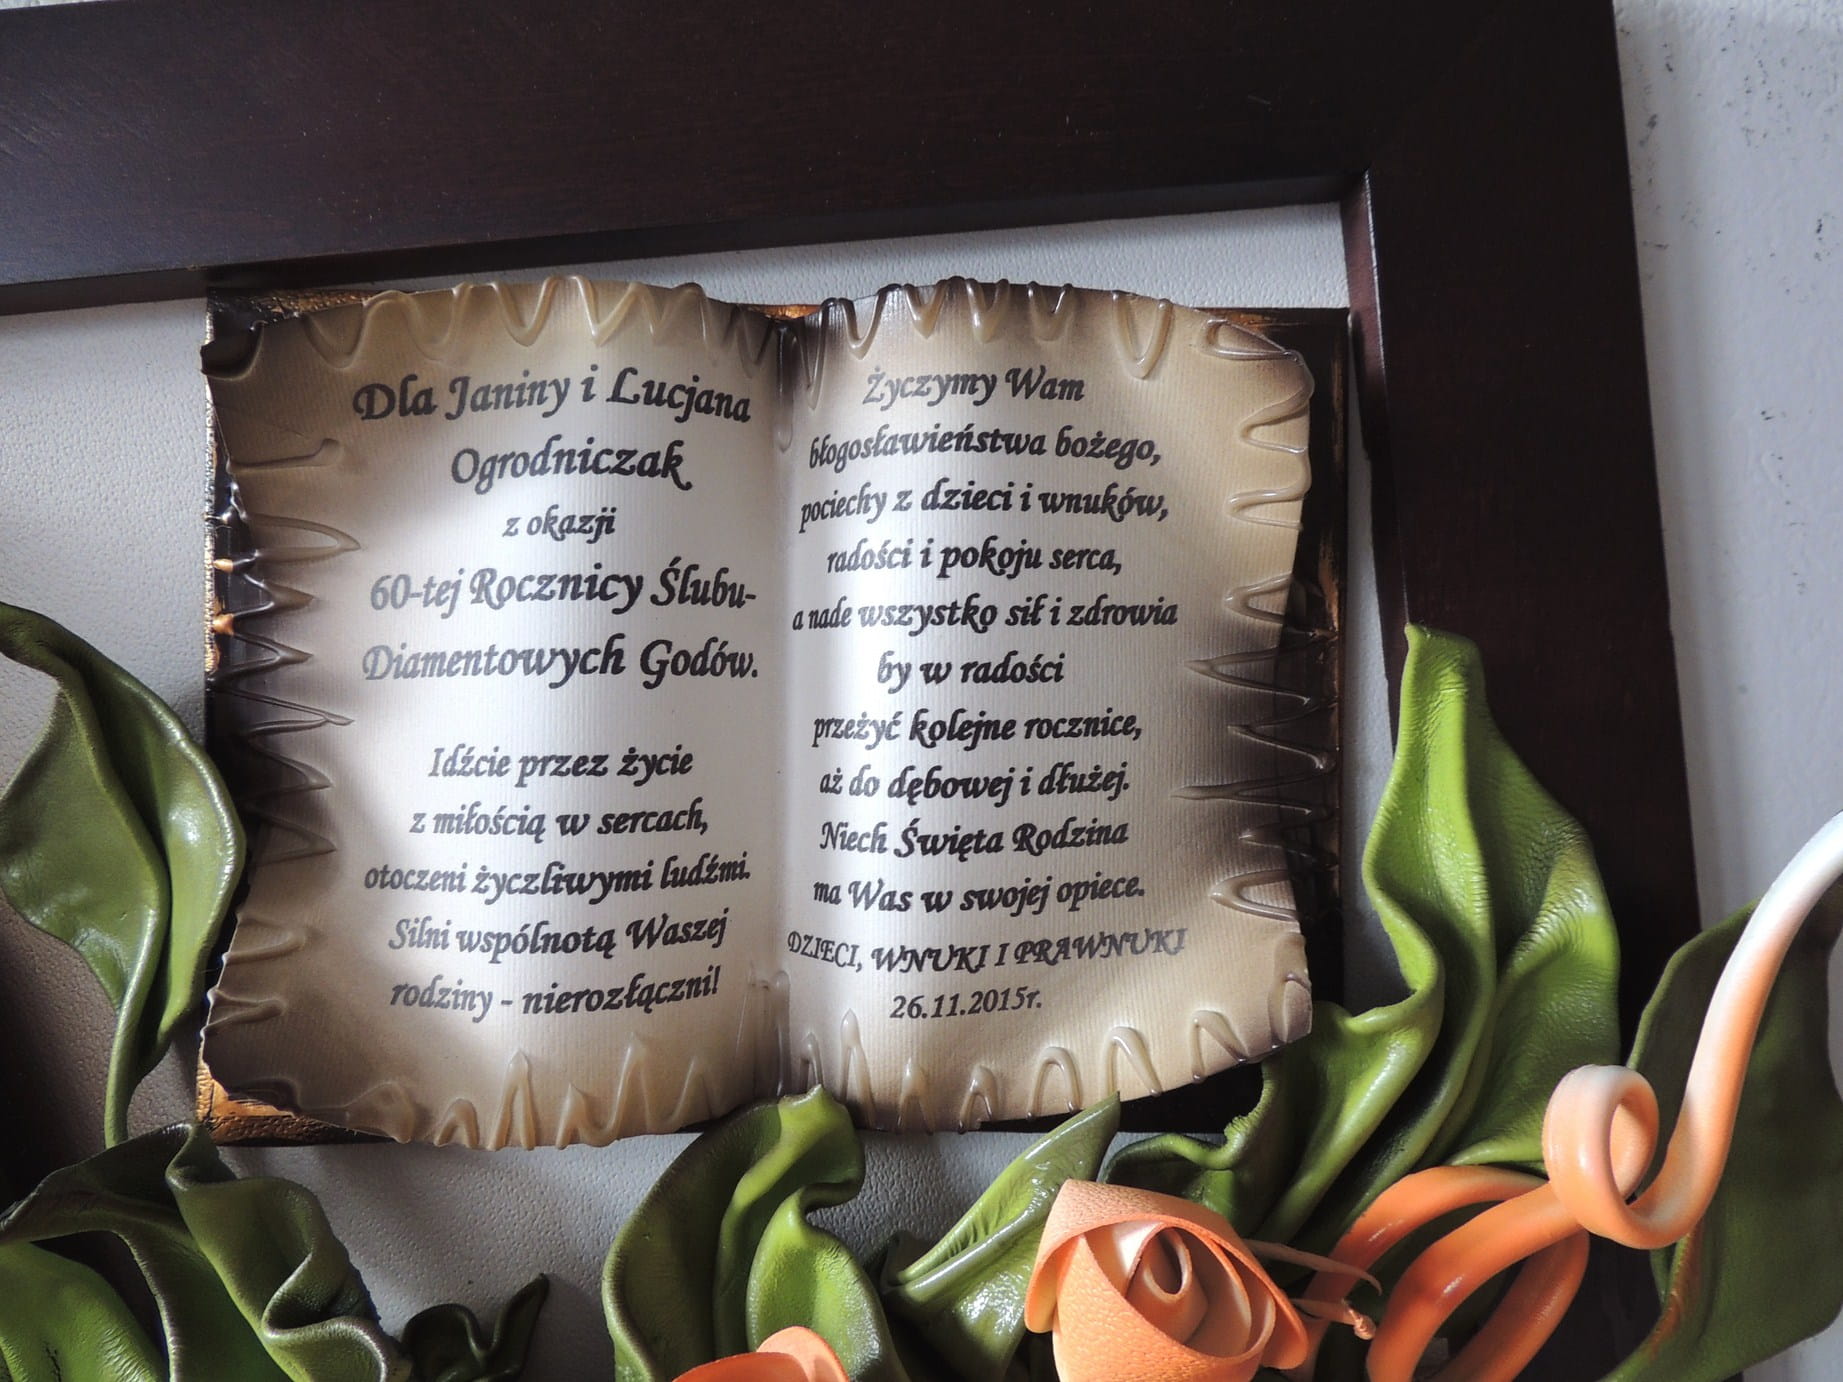 Dla Janiny i Lucjana
Ogrodniczak
z okazji
60-tej Rocznicy Ślubu-
Diamentowych Godów.
Idźcie przez życie
z miłością w sercach,
otoczeni życzliwymi ludźmi.
Silni wspólnotą Waszej
rodziny - nierozłączni!
Życzymy Wam
błogosławieństwa bożego,
pociechy z dzieci i wnuków,
radości i pokoju serca,
a nade wszystko sił i zdrowia
by w radości
przeżyć kolejne rocznice,
aż do dębowej i dłużej.
Niech Święta Rodzina
ma Was w swojej opiece.
DZIECI, WNUKI I PRAWNUKI
26.11.2015r.